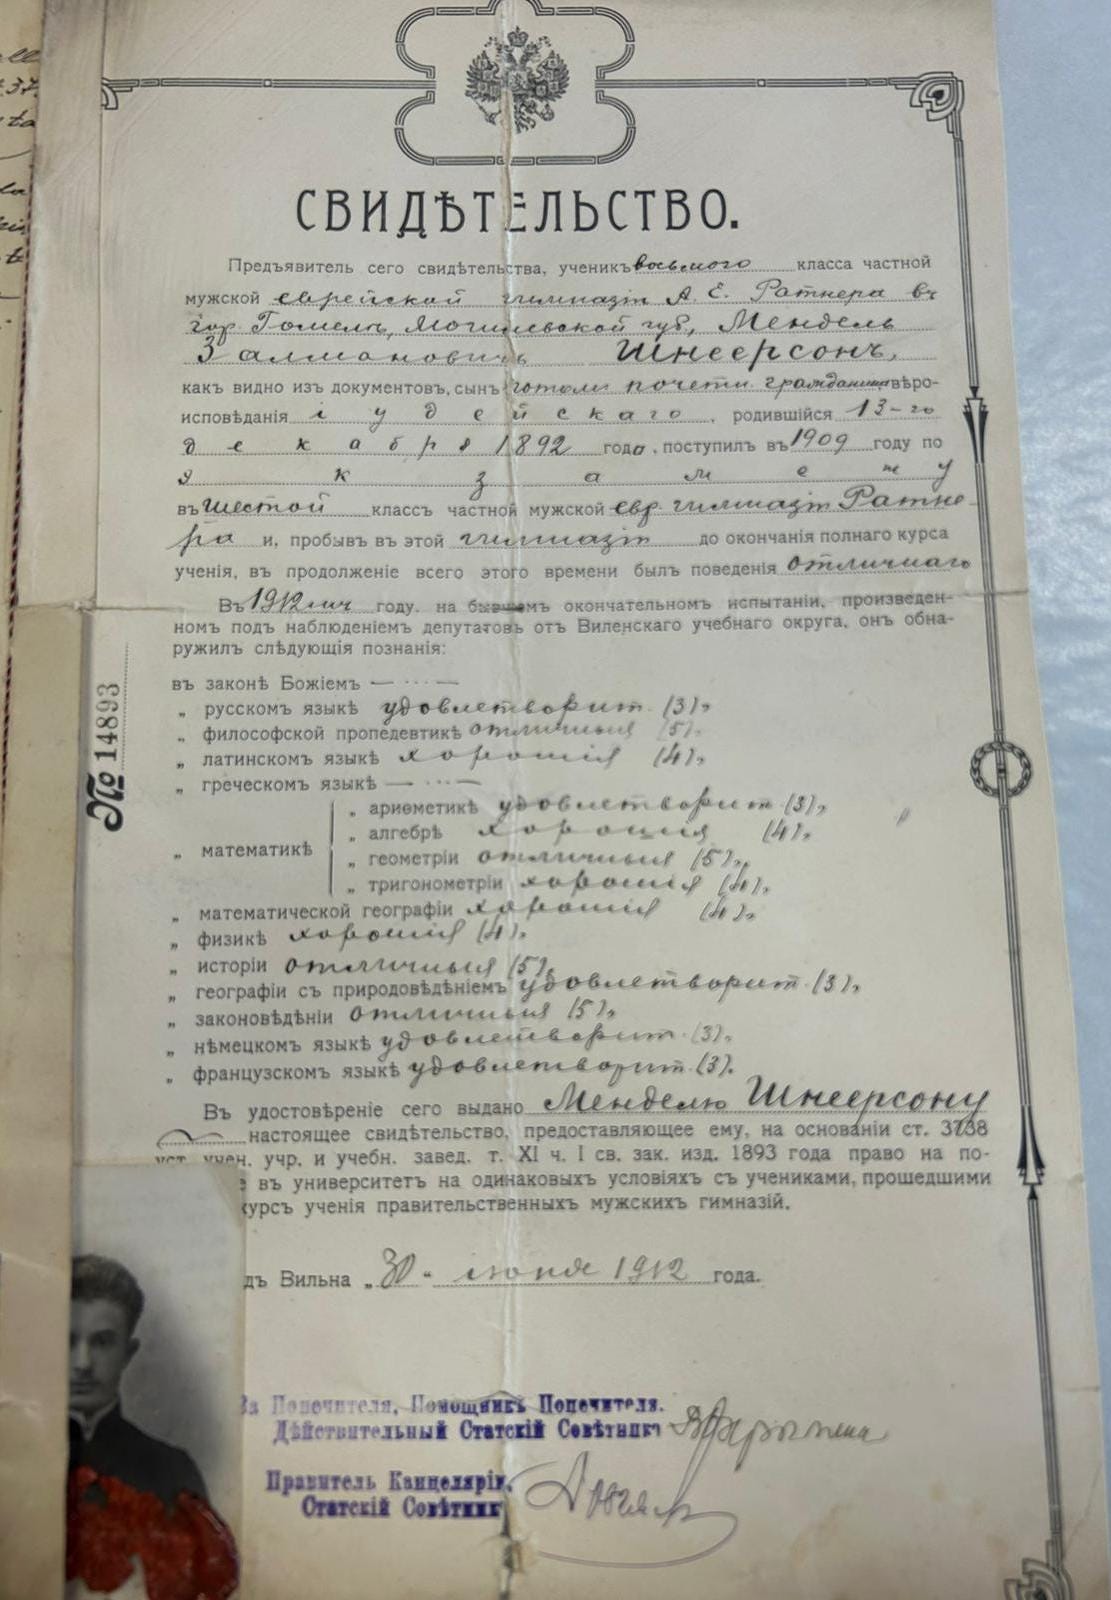 СВИДѢТЕЛЬСТВО.
Предъявитель сего свидѣтельства, ученикъ восьмого класса частной
мужской еврейской гимназіи А. Е. Ратнера въ
гор. Гомелѣ, Могилевской губ., Мендель
Залмановичъ Шнеерсонъ,
какъ видно изъ документовъ, сынъ потом. почетн. гражданина вѣро-
исповѣданія іудейскаго, родившійся 13-го
декабря 1892 года, поступилъ въ 1909 году по
экзамену
въ шестой классъ частной мужской евр. гимназіи Ратне-
ра и, пробывъ въ этой гимназіи до окончанія полнаго курса
ученія, въ продолженіе всего этого времени былъ поведенія отличнаго
Въ 1912 году, на бывшемъ окончательномъ испытаніи, произведен-
номъ подъ наблюденіемъ депутатовъ отъ Виленскаго учебнаго округа, онъ обна-
ружилъ слѣдующія познанія:
№ 14893
въ законѣ Божіемъ — ··· —
„ русскомъ языкѣ удовлетворит. (3),
„ философской пропедевтикѣ отличныя (5).
„ латинскомъ языкѣ хорошія (4),
„ греческомъ языкѣ — ··· —
„ математикѣ
„ ариѳметикѣ удовлетворит. (3),
„ алгебрѣ хорошія (4),
„ геометріи отличныя (5),
„ тригонометріи хорошія (4),
„ математической географіи хорошія (4),
„ физикѣ хорошія (4),
„ исторіи отличныя (5),
„ географіи съ природовѣдѣніемъ удовлетворит. (3),
„ законовѣдѣніи отличныя (5),
„ нѣмецкомъ языкѣ удовлетворит. (3),
„ французскомъ языкѣ удовлетворит. (3).
Въ удостовѣреніе сего выдано Менделю Шнеерсону
настоящее свидѣтельство, предоставляющее ему, на основаніи ст. 3738
уст. учен. учр. и учебн. завед. т. XI ч. I св. зак. изд. 1893 года право на по-
въ университетъ на одинаковыхъ условіяхъ съ учениками, прошедшими
курсъ ученія правительственныхъ мужскихъ гимназій.
Вильна „30" іюня 1912 года.
За Попечителя, Помощникъ Попечителя,
Дѣйствительный Статскій Совѣтникъ
Правитель Канцеляріи,
Статскій Совѣтникъ